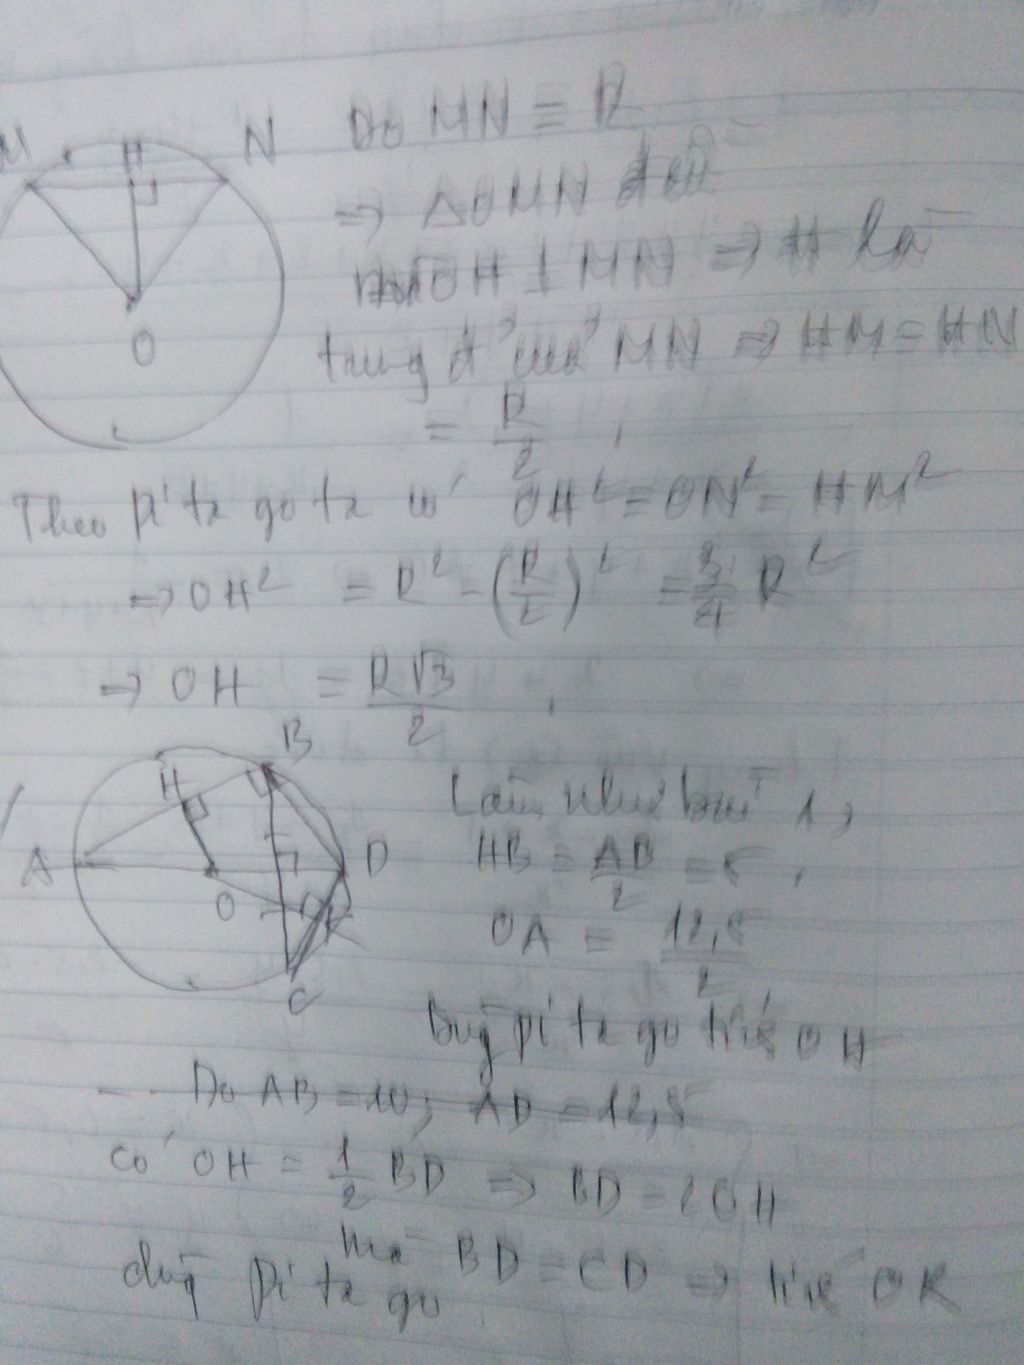 M H N Do MN = R
⇒ ΔOMN đều
OH ⊥ MN ⇒ H là
O
trung đ' của MN ⇒ HM = HN
= R/2
Theo pi ta go ta có OH² = ON² - HM²
⇒ OH² = R² - (R/2)² = 3/4 R²
⇒ OH = R√3/2
B
H Làm như bài 1,
A D HB = AB/2 = 5,
O K OA = 12,5/2
C
Dùng pi ta go tính OH
Do AB = 10; AD = 12,5
có OH = 1/2 BD ⇒ BD = 2OH
mà BD = CD ⇒ tính OK
dùng pi ta go